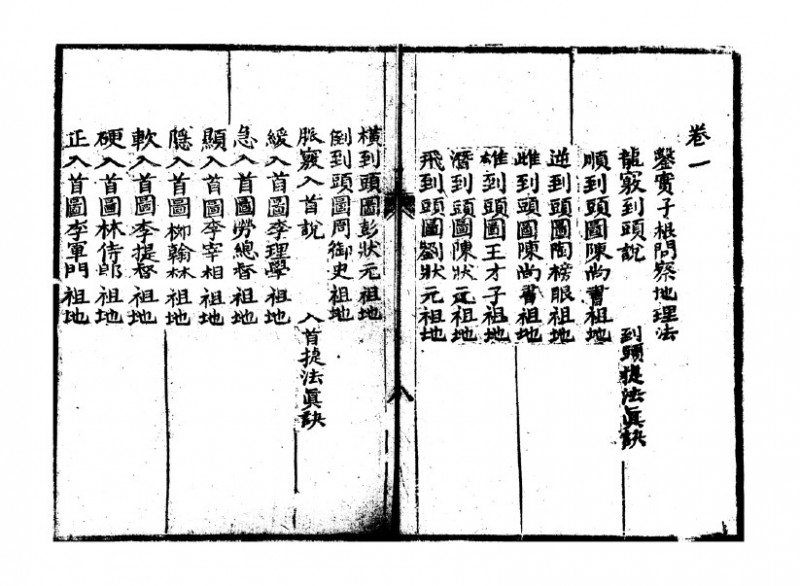 卷一
鑿竇子根問察地理法
龍竅到頭說 到頭捷法眞訣
順到頭圖陳尚書祖地
逆到頭圖陶榜眼祖地
雌到頭圖陳尚書祖地
雄到頭圖王才子祖地
潛到頭圖陳狀元祖地
飛到頭圖劉狀元祖地
八
橫到頭圖彭狀元祖地
倒到頭圖周御史祖地
脈竅入首說 入首捷法眞訣
緩入首圖李理學祖地
急入首圖勞總督祖地
顯入首圖李宰相祖地
隱入首圖柳翰林祖地
軟入首圖李提督祖地
硬入首圖林侍郎祖地
正入首圖李軍門祖地